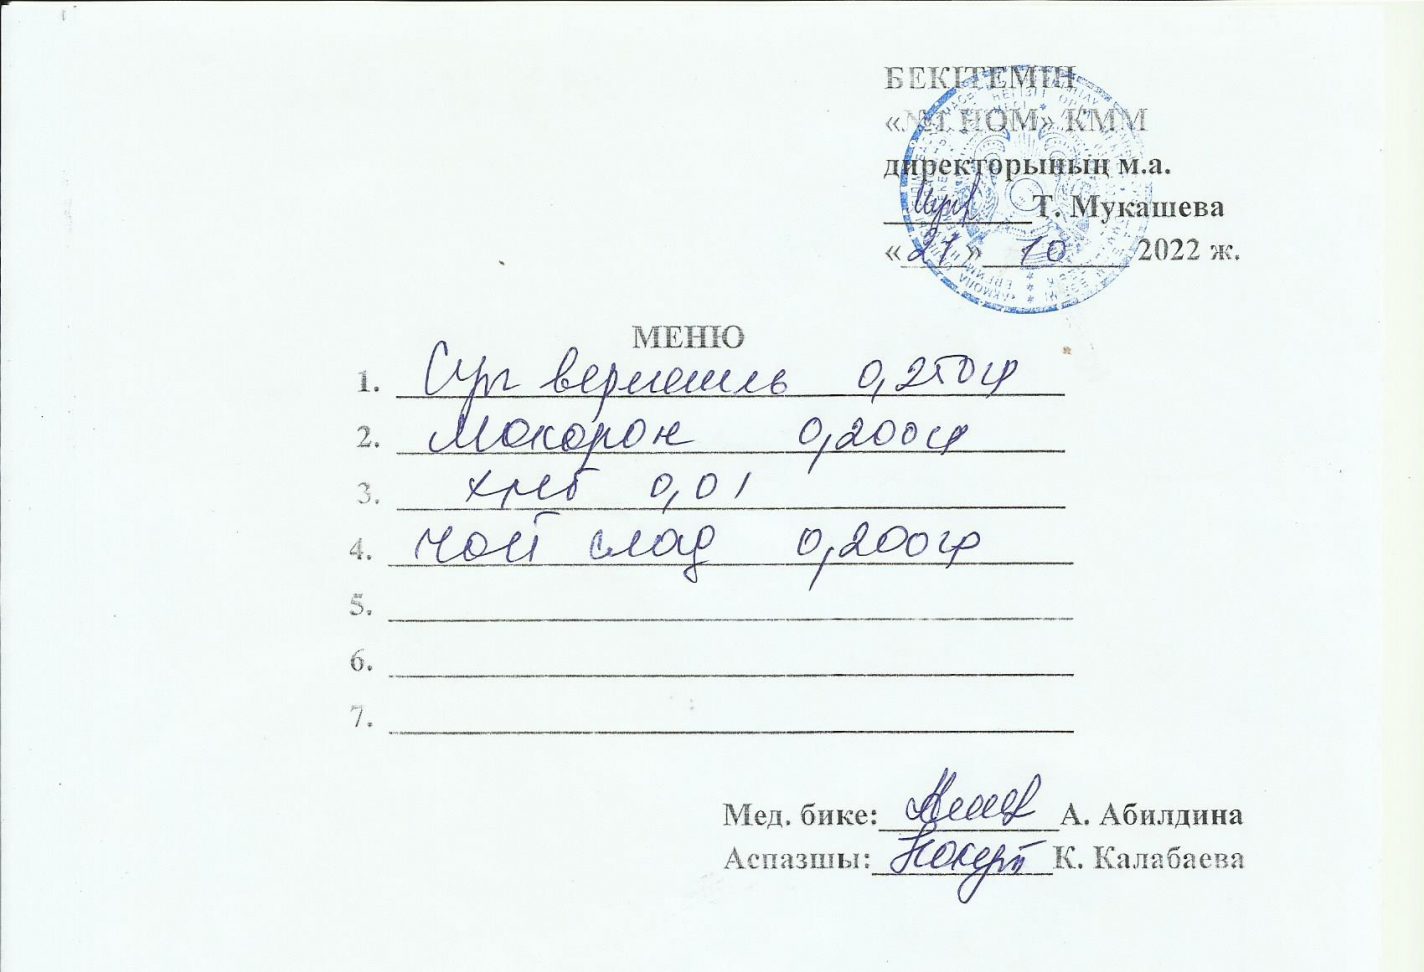 БЕКІТЕМІН
«№1 НОМ» КММ
директорының м.а.
Т. Мукашева
«21» 10 2022 ж.
МЕНЮ
1. Суп вермешль 0,250гр
2. Макорон 0,200гр
3. хлеб 0,01
4. Чай слад 0,200гр
5.
6.
7.
Мед. бике: А. Абилдина
Аспазшы: К. Калабаева